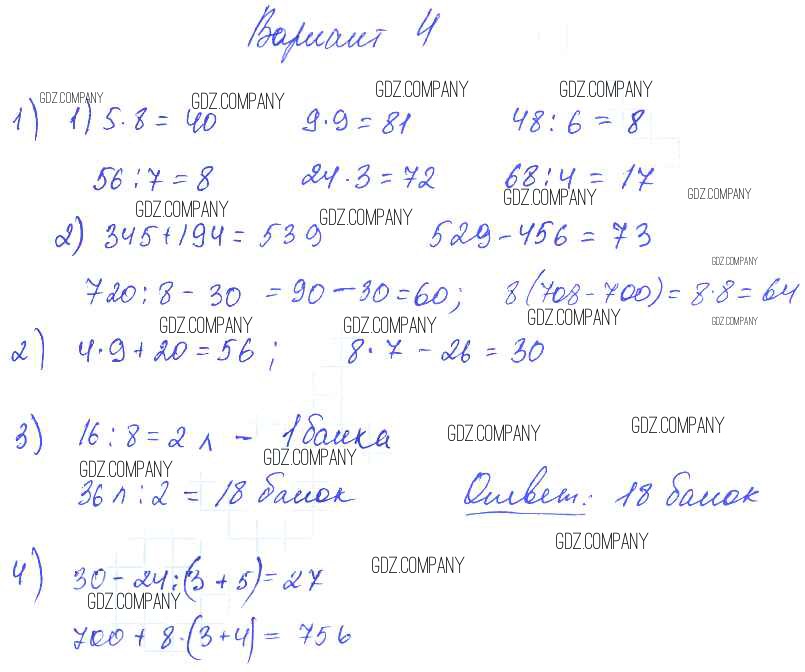 Вариант 4
GDZ.COMPANY GDZ.COMPANY GDZ.COMPANY GDZ.COMPANY
1) 1) 5·8 = 40 9·9 = 81 48:6 = 8
56:7 = 8 24·3 = 72 68:4 = 17
GDZ.COMPANY GDZ.COMPANY GDZ.COMPANY GDZ.COMPANY
2) 345+194 = 539 529-456 = 73
GDZ.COMPANY
720:8 - 30 = 90-30=60; 8(708-700)=8·8=64
GDZ.COMPANY GDZ.COMPANY GDZ.COMPANY GDZ.COMPANY
2) 4·9+20=56; 8·7-26=30
3) 16:8=2 л - 1 банка
GDZ.COMPANY GDZ.COMPANY GDZ.COMPANY GDZ.COMPANY
36 л:2 = 18 банок Ответ: 18 банок
GDZ.COMPANY
4) 30-24:(3+5)=27
GDZ.COMPANY GDZ.COMPANY
700+8·(3+4)=756